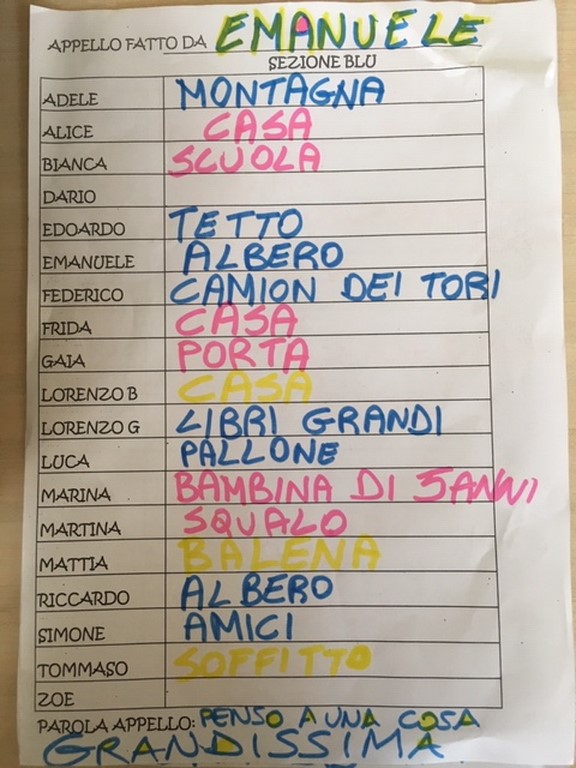 APPELLO FATTO DA EMANUELE
SEZIONE BLU
ADELE MONTAGNA
ALICE CASA
BIANCA SCUOLA
DARIO
EDOARDO TETTO
EMANUELE ALBERO
FEDERICO CAMION DEI TORI
FRIDA CASA
GAIA PORTA
LORENZO B CASA
LORENZO G LIBRI GRANDI
LUCA PALLONE
MARINA BAMBINA DI 5 ANNI
MARTINA SQUALO
MATTIA BALENA
RICCARDO ALBERO
SIMONE AMICI
TOMMASO SOFFITTO
ZOE
PAROLA APPELLO: PENSO A UNA COSA
GRANDISSIMA